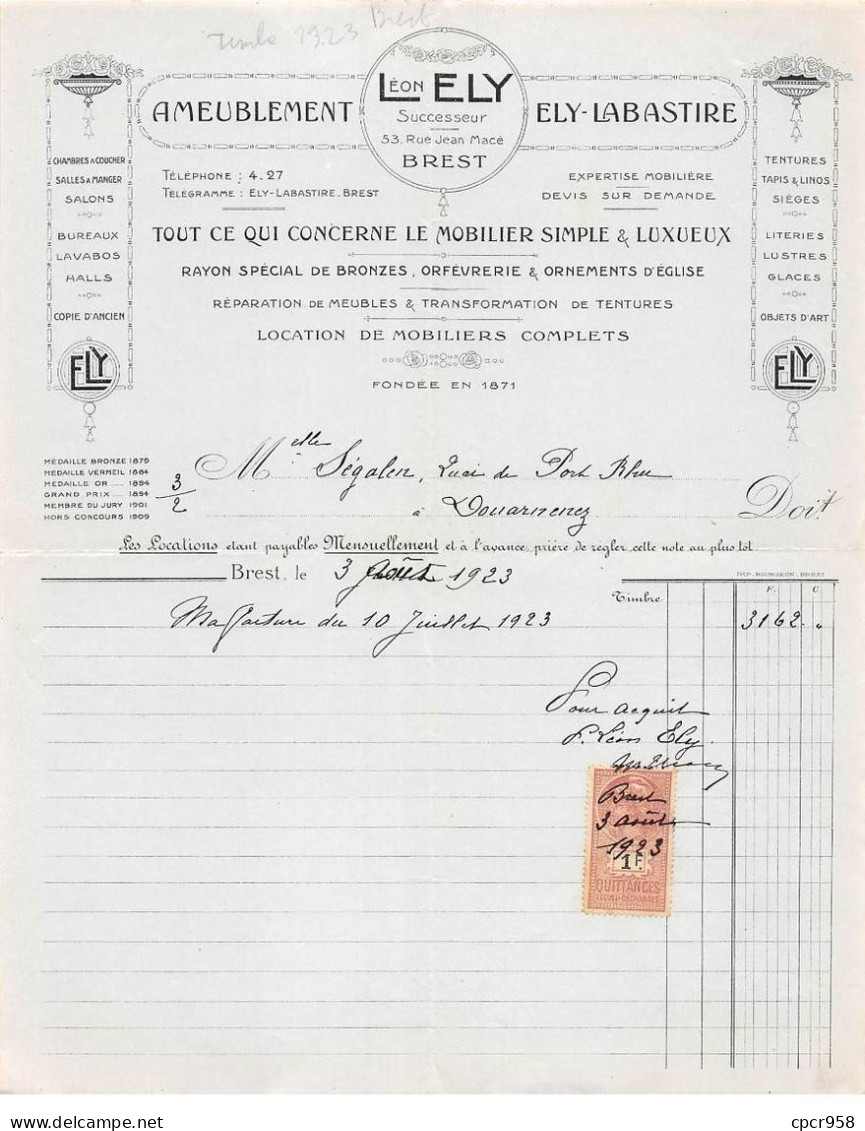 Timbre 1923 Brest
AMEUBLEMENT
LÉON ELY
Successeur
53, Rue Jean Macé
BREST
ELY-LABASTIRE
TÉLÉPHONE : 4.27
TÉLÉGRAMME : ELY-LABASTIRE. BREST
EXPERTISE MOBILIÈRE
DEVIS SUR DEMANDE
CHAMBRES A COUCHER
SALLES A MANGER
SALONS
BUREAUX
LAVABOS
HALLS
COPIE D'ANCIEN
ELY
TENTURES
TAPIS & LINOS
SIÈGES
LITERIES
LUSTRES
GLACES
OBJETS D'ART
ELY
TOUT CE QUI CONCERNE LE MOBILIER SIMPLE & LUXUEUX
RAYON SPÉCIAL DE BRONZES, ORFÉVRERIE & ORNEMENTS D'ÉGLISE
RÉPARATION DE MEUBLES & TRANSFORMATION DE TENTURES
LOCATION DE MOBILIERS COMPLETS
FONDÉE EN 1871
MÉDAILLE BRONZE 1879
MÉDAILLE VERMEIL 1884
MÉDAILLE OR ..... 1894
GRAND PRIX ..... 1894
MEMBRE DU JURY 1901
HORS CONCOURS 1909
3/2
Melle Ségalen, Quai de Port Rhu
à Douarnenez
Doit
Les Locations étant payables Mensuellement et à l'avance, prière de régler cette note au plus tôt
Brest, le 3 Août 1923
IMP. BOURLEUX. BREST
Timbre
F. C
Ma facture du 10 Juillet 1923 3162 "
Pour acquit
P. Léon Ely
Brest
3 août
1923
1 F.
QUITTANCES
REÇUS ET DÉCHARGES
cpcr958